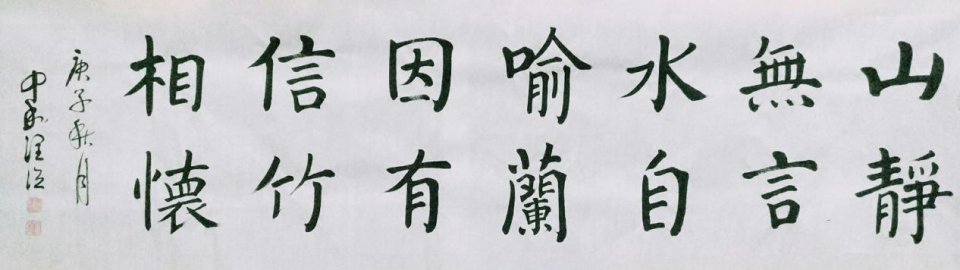 山靜
無言
水自
喻蘭
因有
信竹
相懷
庚子秋月